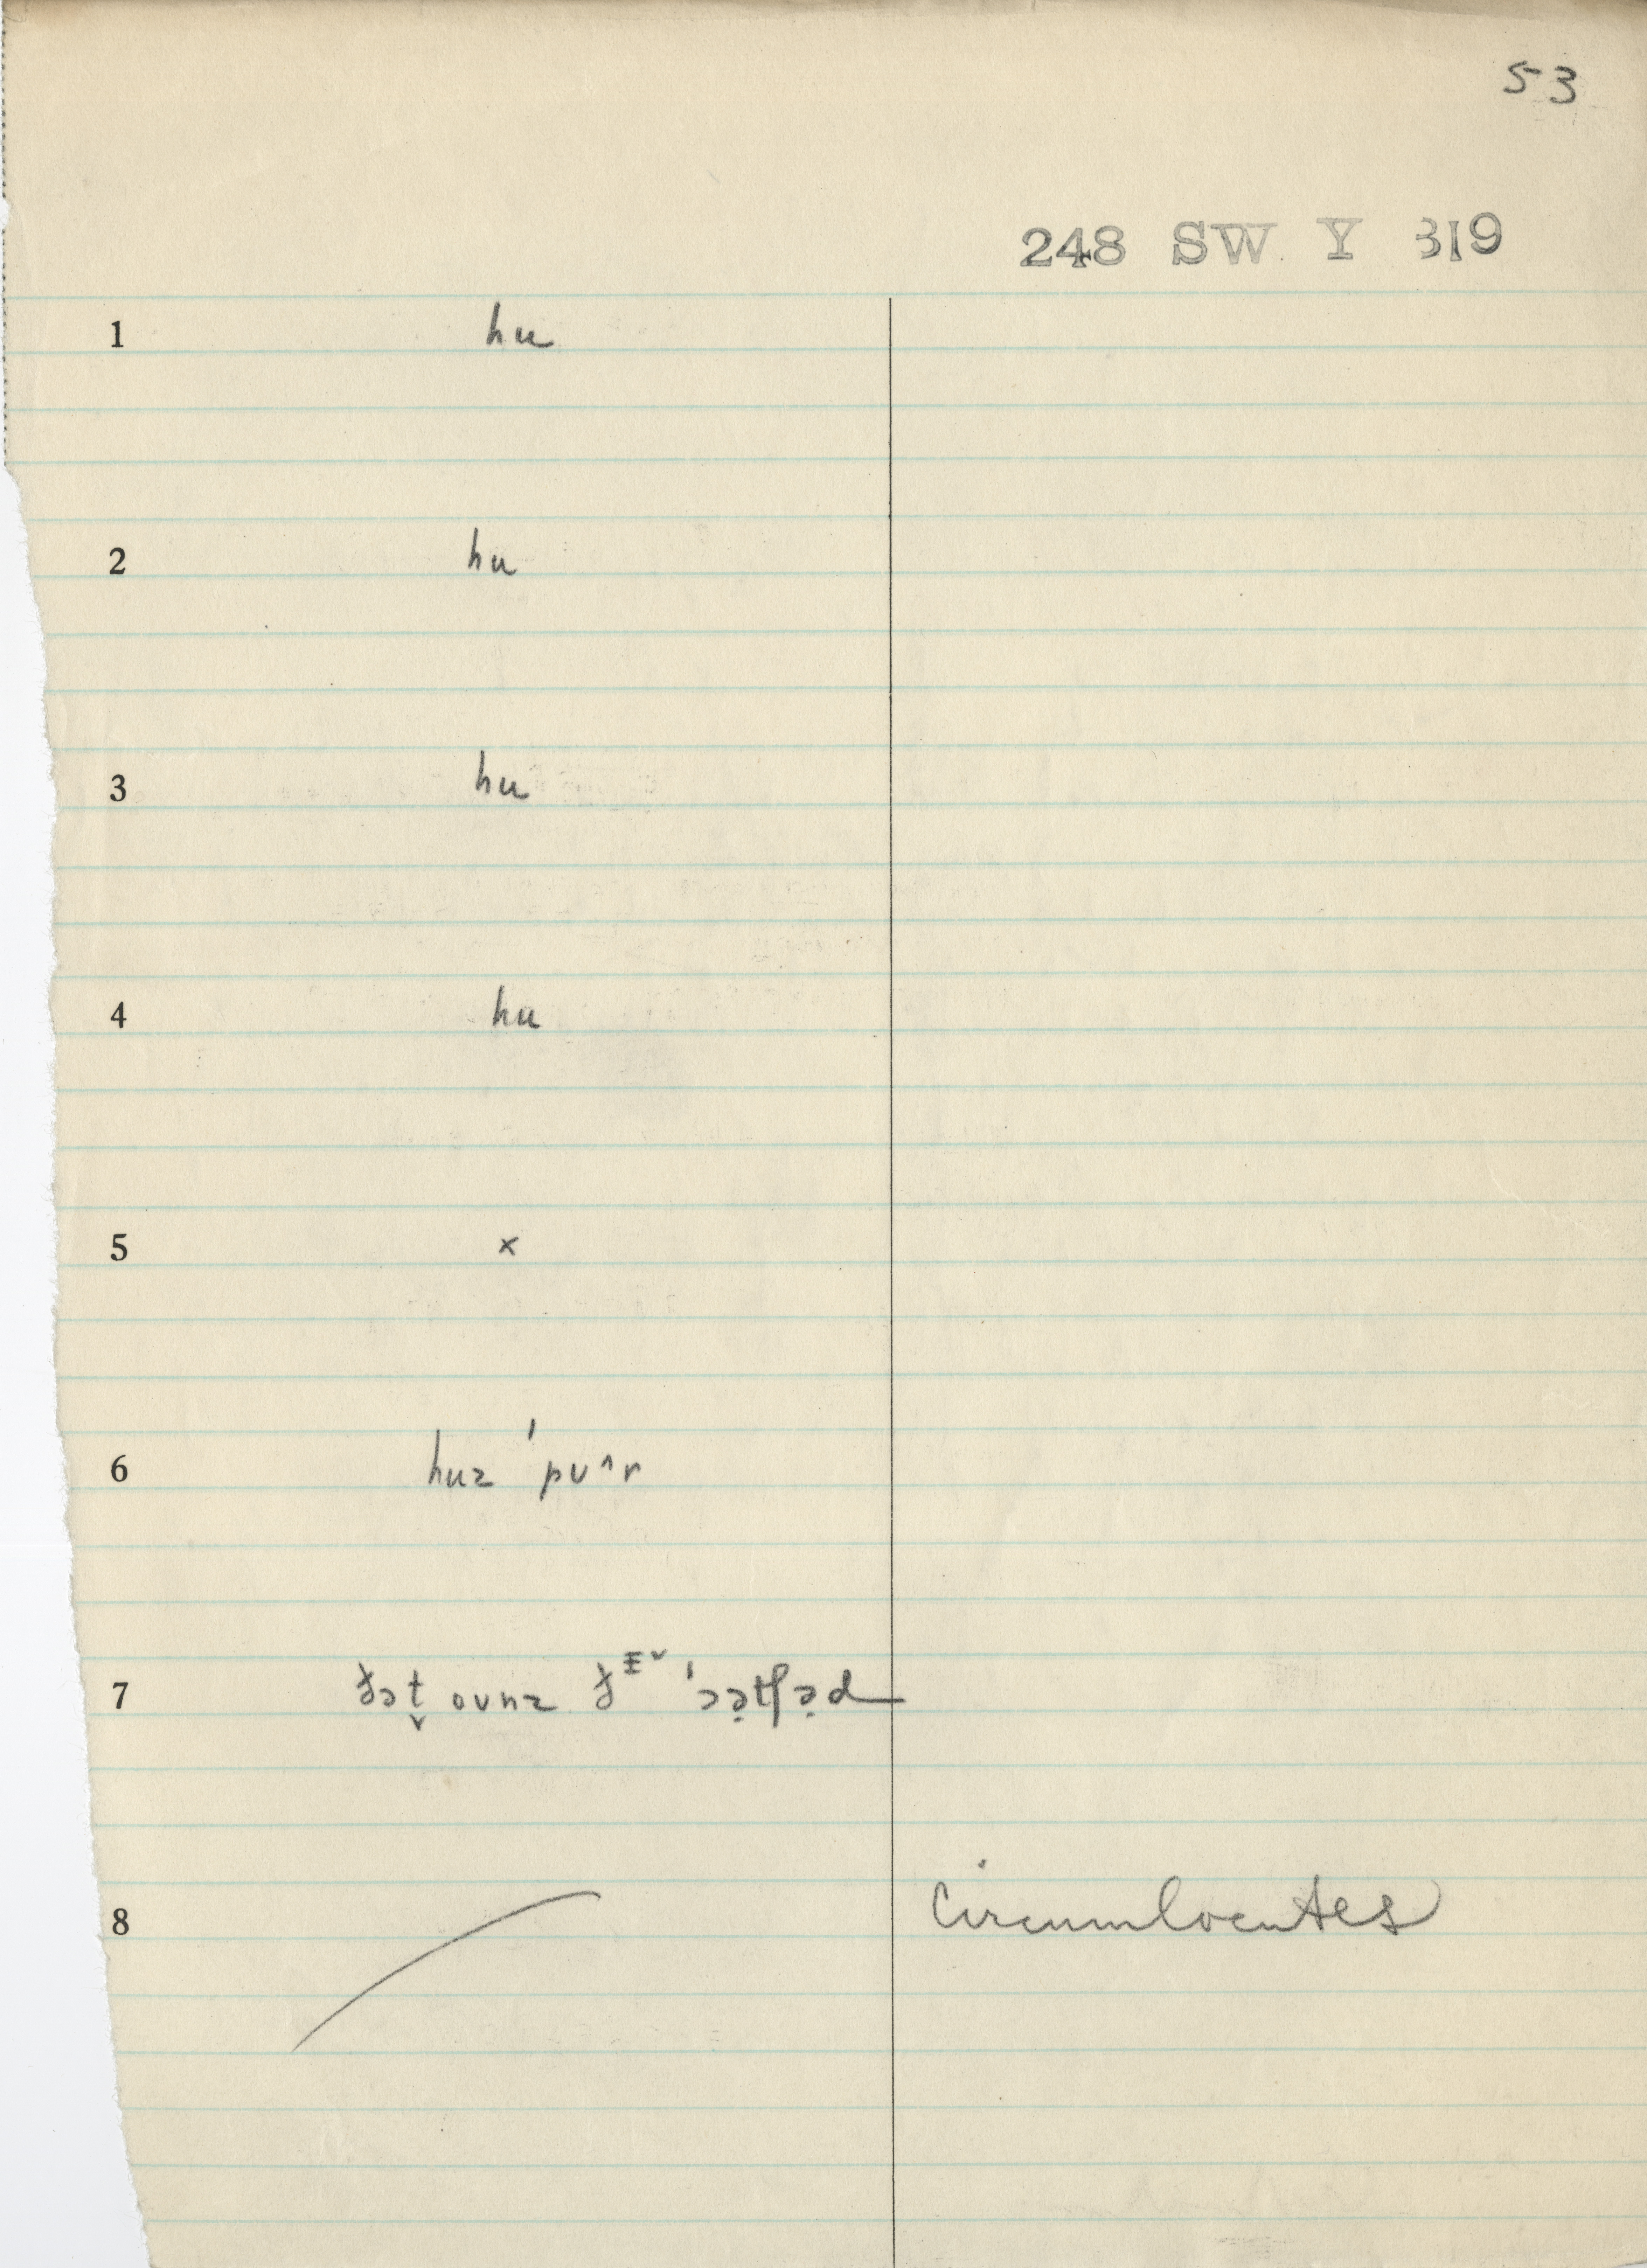 53
248 SW Y 319
1 hu
2 hu
3 hu
4 hu
5 x
6 huz ˈpuˆr
7 ovnz
8 Circumlocutes